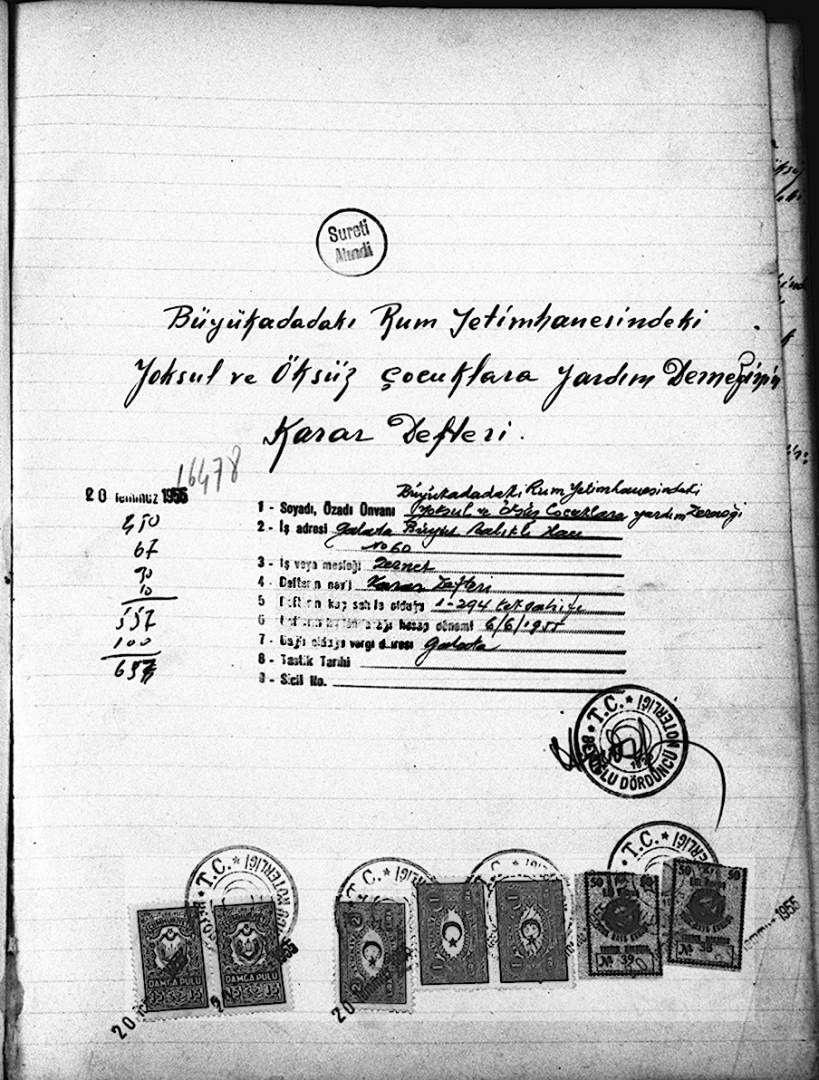 Sureti
Alındı
Büyükadadaki Rum Yetimhanesindeki
Yoksul ve Öksüz Çocuklara Yardım Derneğinin
Karar Defteri.
16478
20 Temmuz 1955
450
67
30
10
557
100
657
Büyükadadaki Rum Yetimhanesindeki
1 - Soyadı, Özadı Ünvanı Yoksul ve Öksüz Çocuklara yardım Derneği
2 - İş adresi Galata Büyük Balıklı Han
No 60
3 - İş veya mesleği Dernek
4 - Defterin nev'i Karar Defteri
5 Defterin kaç sahife olduğu 1-294 tek sahife
6 hesap dönemi 6/6/1955
7 - Bağlı olduğu vergi dairesi Galata
8 - Tastik Tarihi
9 - Sicil No.
T.C. BEYOĞLU DÖRDÜNCÜ NOTERLİĞİ
T.C. NOTERLİĞİ
T.C. NOTERLİĞİ
T.C. NOTERLİĞİ
DAMGA PULU
DAMGA PULU
2
1
1
50
50
№ 39
50
50
№ 38
20
20
1955